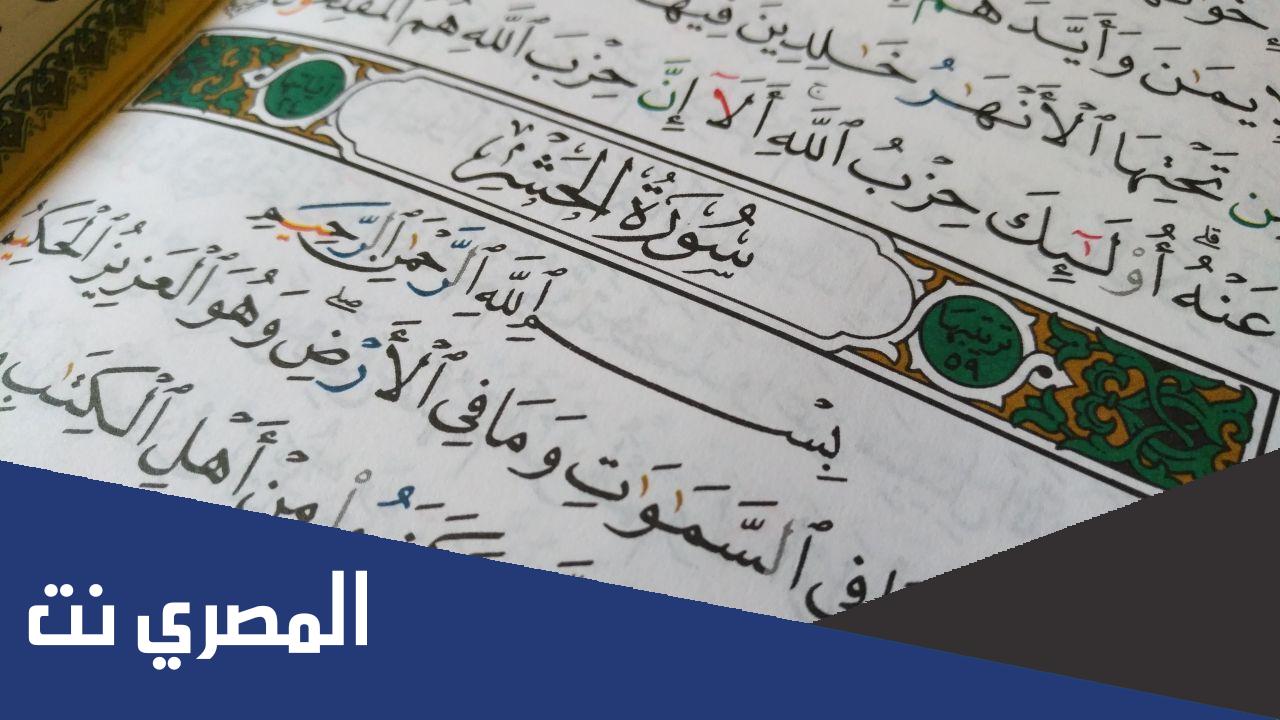 وَأَيَّدَهُم
تَحْتِهَا ٱلْأَنْهَٰرُ خَٰلِدِينَ فِيهَا
عَنْهُ ۚ أُو۟لَٰٓئِكَ حِزْبُ ٱللَّهِ ۚ أَلَآ إِنَّ حِزْبَ ٱللَّهِ هُمُ ٱلْمُفْلِحُونَ
ترتيبها ٥٩
سُورَةُ الحَشْرِ
بِسْمِ ٱللَّهِ ٱلرَّحْمَٰنِ ٱلرَّحِيمِ
فِي ٱلسَّمَٰوَٰتِ وَمَا فِي ٱلْأَرْضِ ۖ وَهُوَ ٱلْعَزِيزُ ٱلْحَكِيمُ
مِنْ أَهْلِ ٱلْكِتَٰبِ
المصري نت